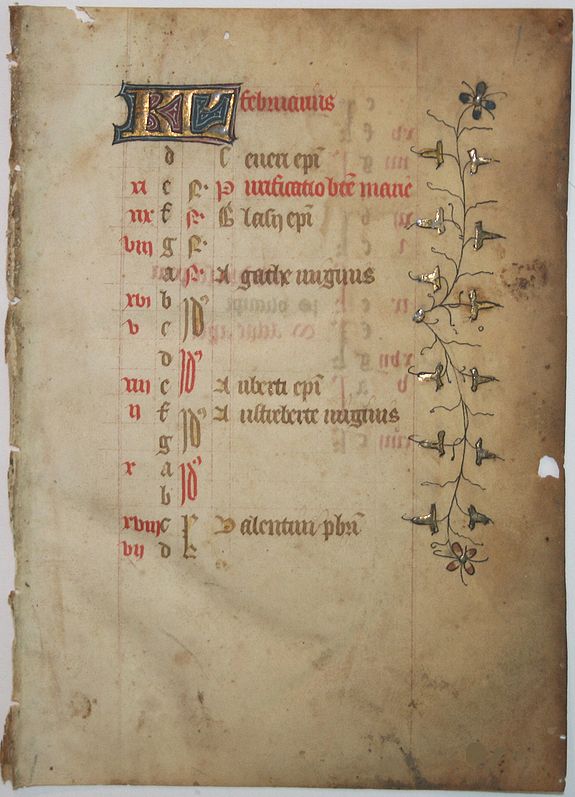 KL februarius
d S eueri epi
xi e N· P urificatio bte marie
xix f N· B lasij epi
viij g N·
a N· A gathe uirginis
xvi b Id'
v c
d Id'
xiii e A uberti epi
ij f Id' A ustreberte uirginis
g
x a Id'
b
xviij c k V alentini pbri
vij d